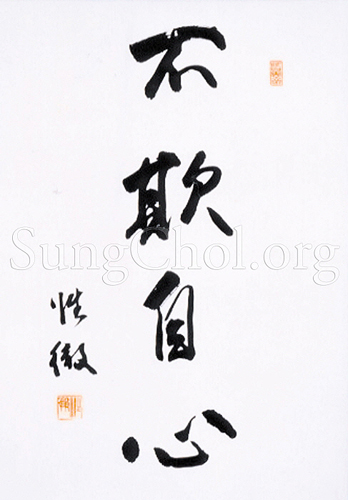 不欺自心
性徹
SungChol.org